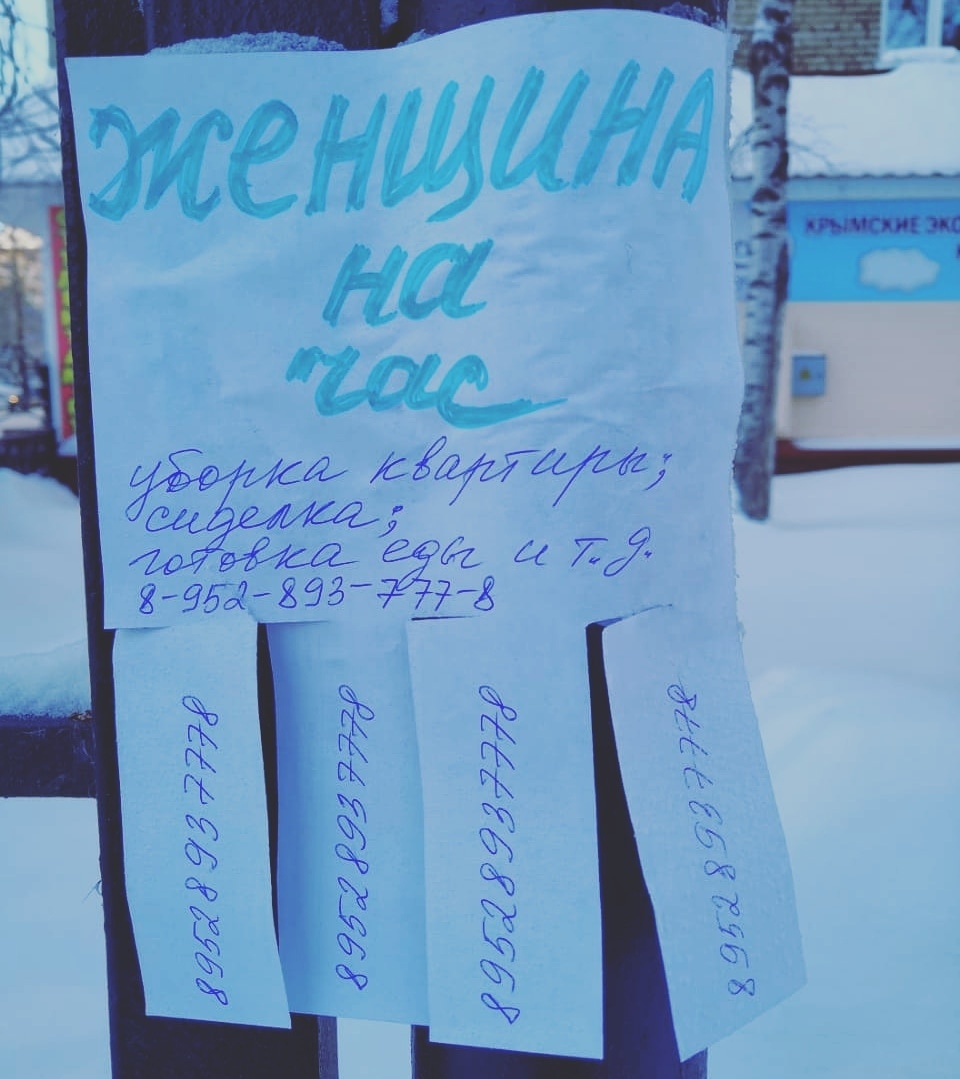 ЖЕНЩИНА
на
час
уборка квартиры;
сиделка;
готовка еды и т.д.
8-952-893-777-8
89528937778
89528937778
89528937778
89528937778
КРЫМСКИЕ ЭКО